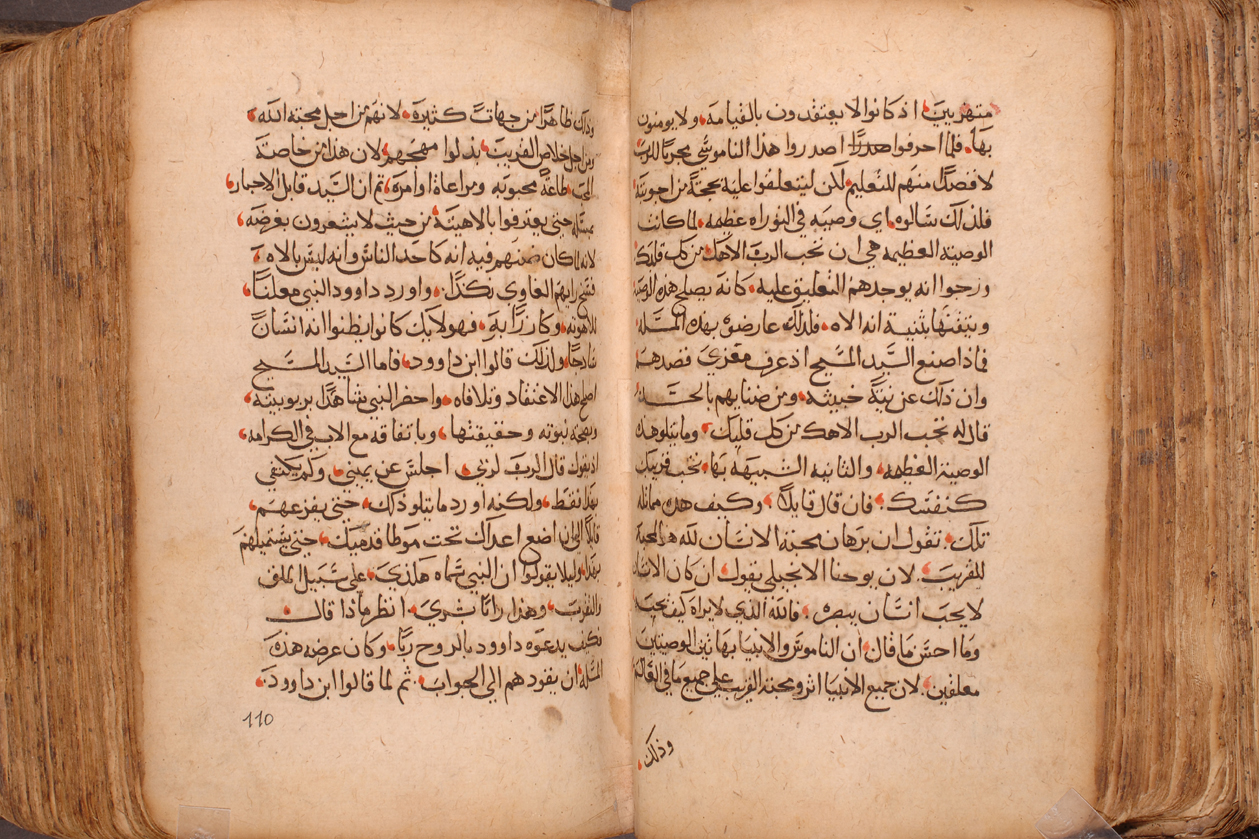 متهزيين اذ كانوا لا يعتقدون بالقيامة ولا يومنون
بها. فلما احرفوا اصدروا هذا الناموسي مجربًا للرب
لا قصدًا منهم للتعليم لكن ليتعلقوا عليه بحجة من اجوبته
فلذلك سالوه اي وصيه في التوراه عظمه لما كانت
الوصية العظيمه هي ان تحب الرب الاهك من كل قلبك
ورجوا انه يوجدهم التعليق عليه كانه يصلح هذه الوصية
ويتقنها بثنية انه الاه فلذلك عارضوه بهذه المسله
فماذا صنع السيد المسيح اذ عرف مغزى قصدهم
وان ذلك عن نية خبيثه ومن ضنايهم بالحسد
قال له تحب الرب الاهك من كل قلبك وما يتلو هذه
الوصية العظمه والثانيه الشبيهه بها تحب قريبك
كنفسك فان قال قايلًا وكيف هذه مماثله
تلك نقول ان برهان محبة الانسان لله هو المحبة
للقريب لان يوحنا الانجيلي يقول ان كان الانسان
لا يحب انسان يبصره فالله الذي لا يراه كيف يحبه
وما احسن ما قال ان الناموس والانبيا بهاتين الوصيتين
معلقين لان جميع الانبيا اثرو محبة القريب على جميع ما في العالم
وذلك
وذلك ظاهرًا من جهات كثيرة لانهم من اجل محبة الله
ومن اجل خلاص القريب بذلوا مهجهم لان هذا من خاصة
المحب طاعة محبوبه ومراعاة اوامره ثم ان السيد قابل الاحبار
بمسله حتى يعترفوا بالاهيته من حيث لا يشعرون بغرضه
لانه لما كان ضنهم فيه انه كاحد الناس وانه ليس بالاه
فسخ رايهم الغاوي نكدًا واورد داوود النبي معلنًا
للاهوته وكارزًا به فهولايك كانوا يظنوا انه انسان
سادجًا ولذلك قالوا ابن داوود فاما السيد المسيح
اصلح هذا الاعتقاد وتلافاه واحضر النبي شاهدًا بربوبيته
وبصحة نبوته وحقيقتها وباتفاقه مع الاب في الكرامه
اذ يقول قال الرب لربي اجلس عن يميني ولم يكتفي
بهذا فقط ولكنه اورد ما يتلو ذلك حتى يفزعهم
قايلًا الى ان اضع اعداك تحت موطا قدميك حتى يستميلهم
بهذا وليلا يقولوا ان النبي سماه هكذي على سبيل الملق
والتقريب وهذا رايًا بشري انظر ماذا قال
فكيف يدعوه داوود بالروح ربًا وكان غرضه هذه
المسله ان يقودهم الى الجواب ثم لما قالوا ابن داوود
110